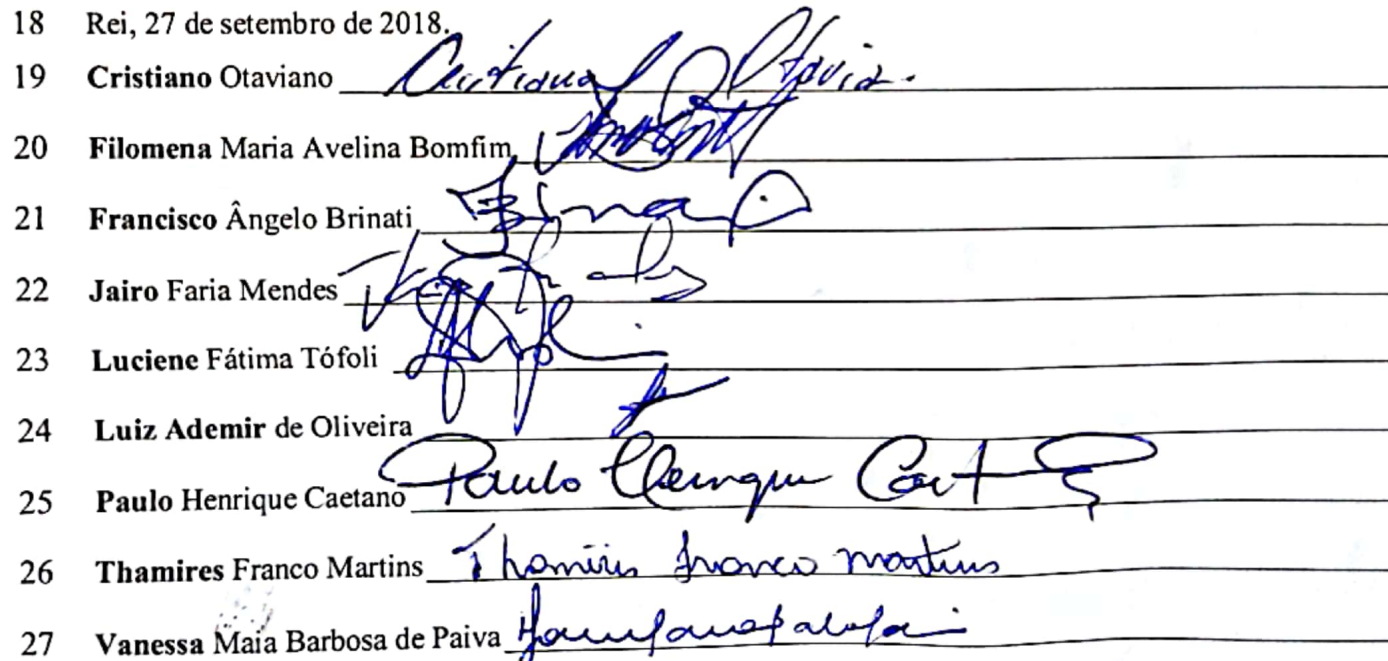 18 Rei, 27 de setembro de 2018.
19 Cristiano Otaviano Cristiano Otavia.
20 Filomena Maria Avelina Bomfim
21 Francisco Ângelo Brinati
22 Jairo Faria Mendes
23 Luciene Fátima Tófoli
24 Luiz Ademir de Oliveira
25 Paulo Henrique Caetano Paulo Henrique Caet
26 Thamires Franco Martins Thamires Franco Martins
27 Vanessa Maia Barbosa de Paiva